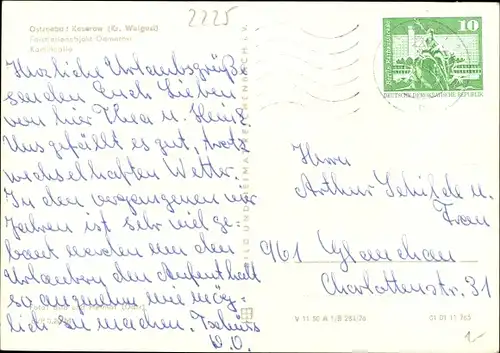 2225
Ostseebad Koserow (Kr. Wolgast)
Herzliche Urlaubsgrüße
senden Euch Lieben
von hier Thea u. Heinz.
Uns gefällt es gut, trotz
wechselhaften Wetter.
In den vergangenen vier
Jahren ist sehr viel ge-
baut worden um den
Urlaubern den Aufenthalt
so angenehm wie mög-
lich zu machen. Tschüss
D.O.
BILD UND HEIMAT REICHENBACH I. V.
10
DEUTSCHE DEMOKRATISCHE REPUBLIK
Herrn
Arthur Schilde u.
Frau
961 Glauchau
Charlottenstr. 31
01 01 11 763